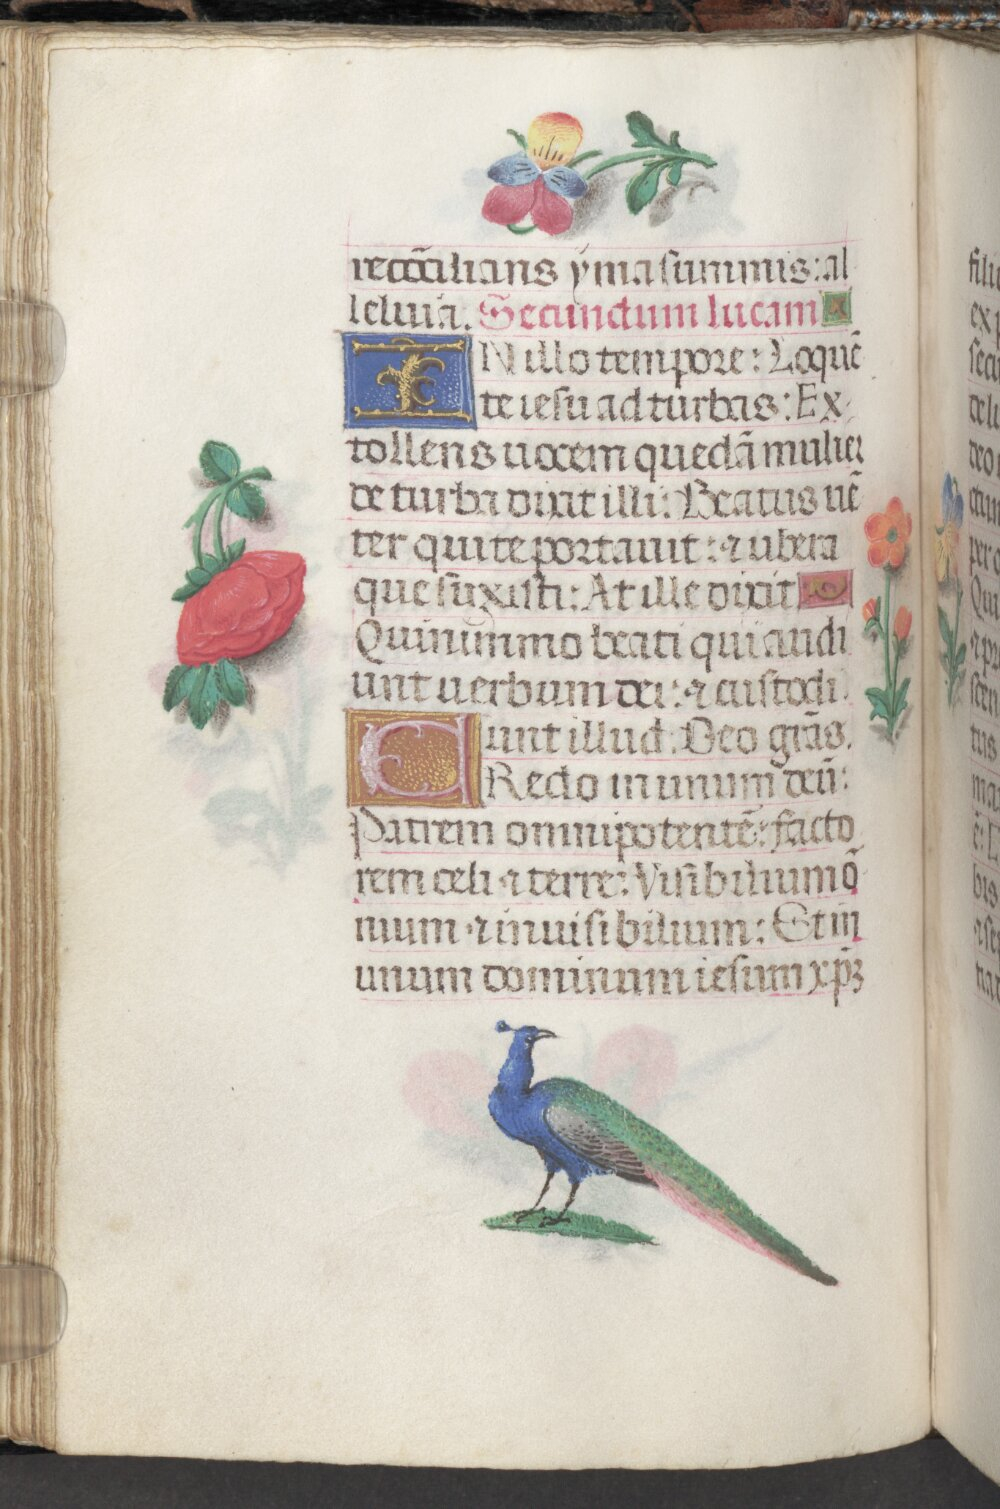 reconcilians yma summis: al
leluia. Secundum lucam
IN illo tempore: Loquē
te iesu ad turbas: Ex
tollens uocem quedā mulier
de turba dixit illi: Beatus uē
ter qui te portauit: ⁊ ubera
que suxisti: At ille dixit
Quinimmo beati qui audi
unt uerbum dei: ⁊ custodi
unt illud. Deo grās.
CRedo in unum deū:
Patrem omnipotentē: facto
rem celi ⁊ terre: Visibilium ō
nium ⁊ inuisibilium: Et in
unum dominum iesum xp̄ꝫ